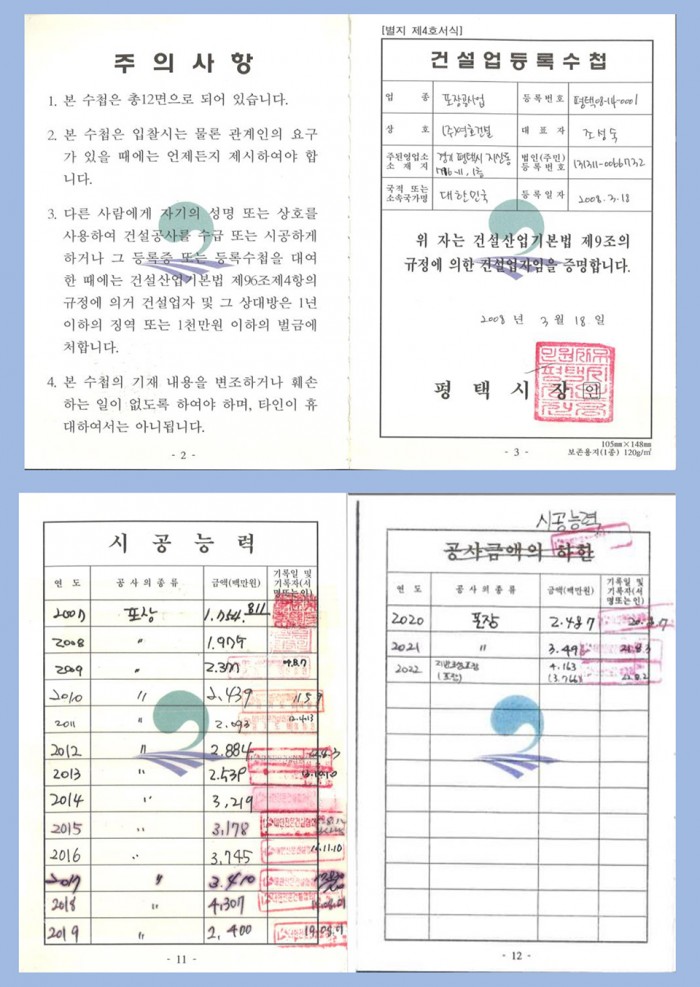 주 의 사 항
1. 본 수첩은 총12면으로 되어 있습니다.
2. 본 수첩은 입찰시는 물론 관계인의 요구
가 있을 때에는 언제든지 제시하여야 합
니다.
3. 다른 사람에게 자기의 성명 또는 상호를
사용하여 건설공사를 수급 또는 시공하게
하거나 그 등록증 또는 등록수첩을 대여
한 때에는 건설산업기본법 제96조제4항의
규정에 의거 건설업자 및 그 상대방은 1년
이하의 징역 또는 1천만원 이하의 벌금에
처합니다.
4. 본 수첩의 기재 내용을 변조하거나 훼손
하는 일이 없도록 하여야 하며, 타인이 휴
대하여서는 아니됩니다.
- 2 -
[별지 제4호서식]
건설업등록수첩
업 종 포장공사업 등록번호 평택08-14-0001
상 호 대 표 자
주된영업소
소 재 지
법인(주민)
등 록 번 호 131311-0066732
국적 또는
소속국가명 대한민국 등 록 일 자 2008.3.18
위 자는 건설산업기본법 제9조의
규정에 의한 건설업자임을 증명합니다.
2008 년 3 월 18 일
평 택 시 장 인
- 3 -
105㎜×148㎜
보존용지(1종) 120g/㎡
시 공 능 력
연 도 공 사 의 종 류 금액(백만원) 기록일 및
기록자(서
명또는인)
2007 포장
2008 〃
2009 〃
2010 〃 2.439
2011 〃 2.093
2012 〃 2.884
2013 〃
2014 〃 3,219
2015 〃 3,178
2016 〃 3,745 16.11.10
2017 〃 3.410
2018 〃 4,307
2019 〃 2,400 19.08.01
- 11 -
시공능력
공사금액의 하한
연 도 공 사 의 종 류 금액(백만원) 기록일 및
기록자(서
명또는인)
2020 포장 2.487
2021 〃 3.496 21.8.3
2022 지반조성포장 4.163
(포장) (3.766)
- 12 -